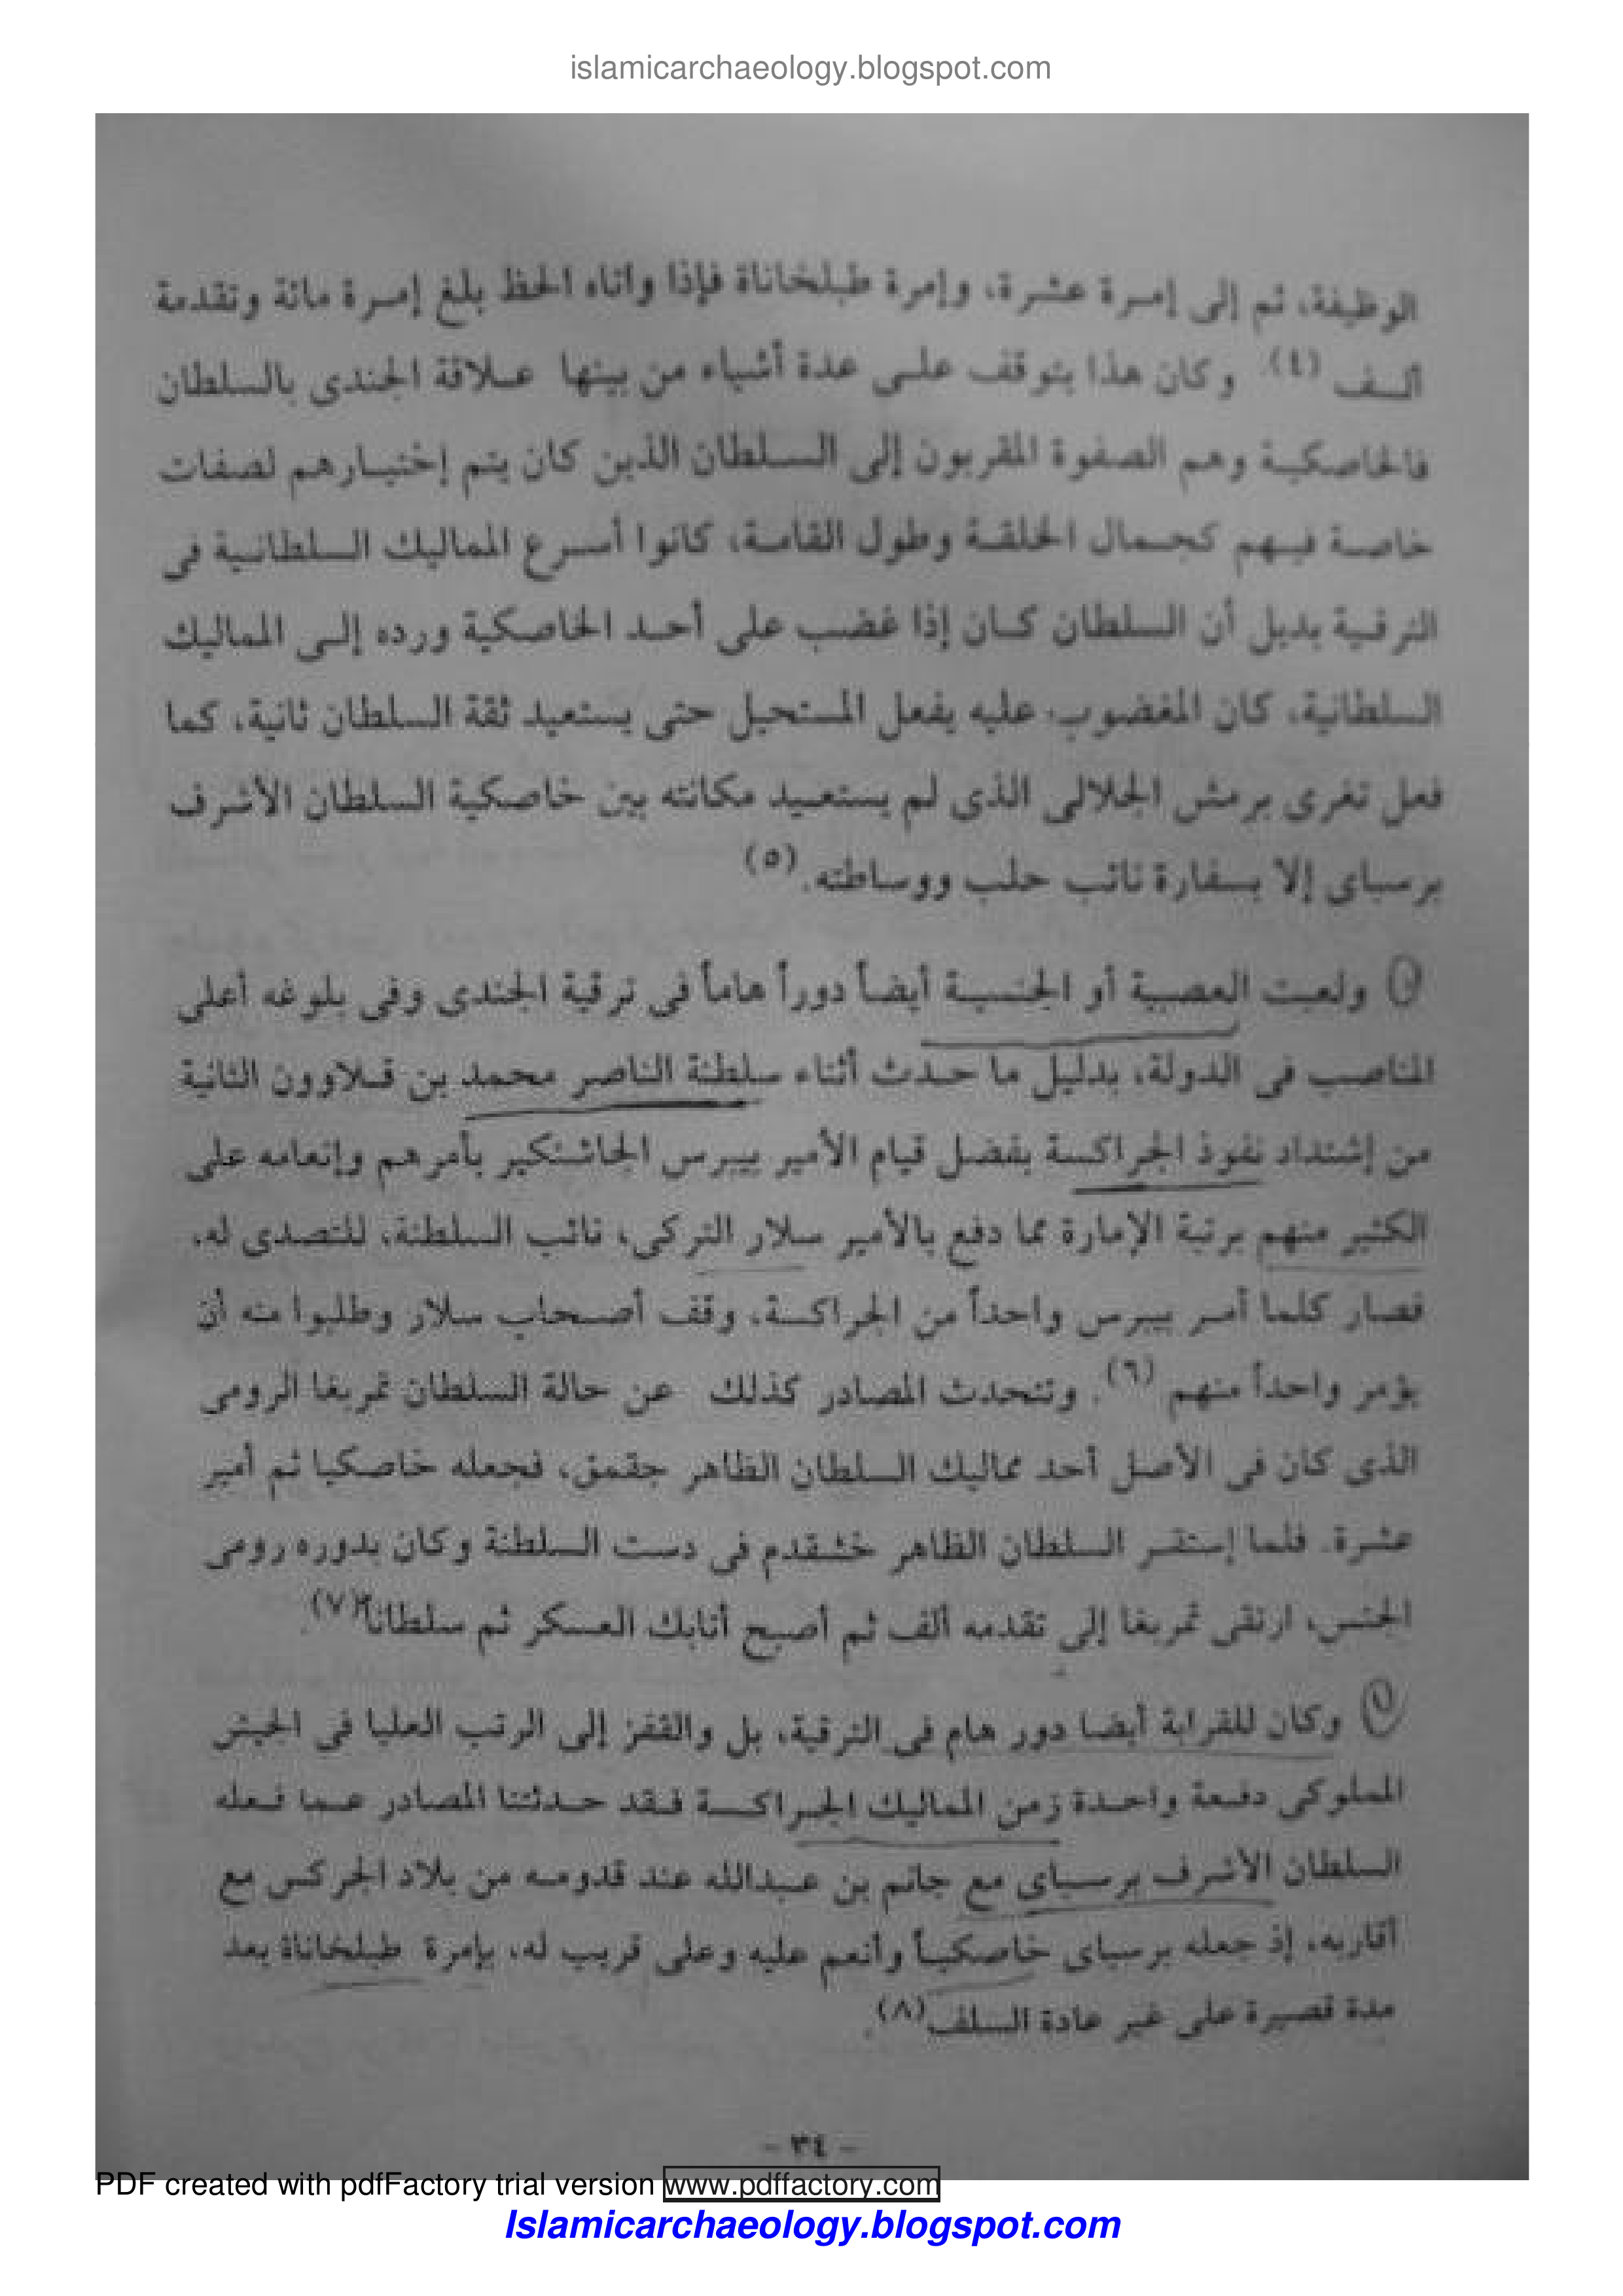 islamicarchaeology.blogspot.com
الوظيفة، ثم إلى إمرة عشرة، وإمرة طبلخاناة فإذا واتاه الحظ بلغ إمرة مائة وتقدمة
ألف (٤). وكان هذا يتوقف على عدة أشياء من بينها علاقة الجندى بالسلطان
فالخاصكية وهم الصفوة المقربون إلى السلطان الذين كان يتم إختيارهم لصفات
خاصة فيهم كجمال الخلقة وطول القامة، كانوا أسرع المماليك السلطانية فى
الترقية بديل أن السلطان كان إذا غضب على أحد الخاصكية ورده إلى المماليك
السلطانية، كان المغضوب عليه يفعل المستحيل حتى يستعيد ثقة السلطان ثانية، كما
فعل تغرى برمش الجلالى الذى لم يستعيد مكانته بين خاصكية السلطان الأشرف
برسباى إلا بسفارة نائب حلب ووساطته. (٥)
ولعبت العصبية أو الجنسية أيضاً دوراً هاماً فى ترقية الجندى وفى بلوغه أعلى
المناصب فى الدولة، بدليل ما حدث أثناء سلطنة الناصر محمد بن قلاوون الثانية
من إشتداد نفوذ الجراكسة بفضل قيام الأمير بيبرس الجاشنكير بأمرهم وإنعامه على
الكثير منهم برتبة الإمارة مما دفع بالأمير سلار التركى، نائب السلطنة، للتصدى له،
فصار كلما أمر بيبرس واحداً من الجراكسة، وقف أصحاب سلار وطلبوا منه أن
يؤمر واحداً منهم (٦). وتتحدث المصادر كذلك عن حالة السلطان تمربغا الرومى
الذى كان فى الأصل أحد مماليك السلطان الظاهر جقمق، فجعله خاصكيا ثم أمير
عشرة. فلما إستقر السلطان الظاهر خشقدم فى دست السلطنة وكان بدوره رومى
الجنس، ارتقى تمربغا إلى تقدمه ألف ثم أصبح أتابك العسكر ثم سلطاناً (٧).
وكان للقرابة أيضا دور هام فى الترقية، بل والقفز إلى الرتب العليا فى الجيش
المملوكى دفعة واحدة زمن المماليك الجراكسة فقد حدثتنا المصادر عما فعله
السلطان الأشرف برسباى مع جانم بن عبدالله عند قدومه من بلاد الجركس مع
أقاربه، إذ جعله برسباى خاصكياً وأنعم عليه وعلى قريب له، بإمرة طبلخاناة بعد
مدة قصيرة على غير عادة السلف (٨).
- ٣٤ -
PDF created with pdfFactory trial version www.pdffactory.com
Islamicarchaeology.blogspot.com